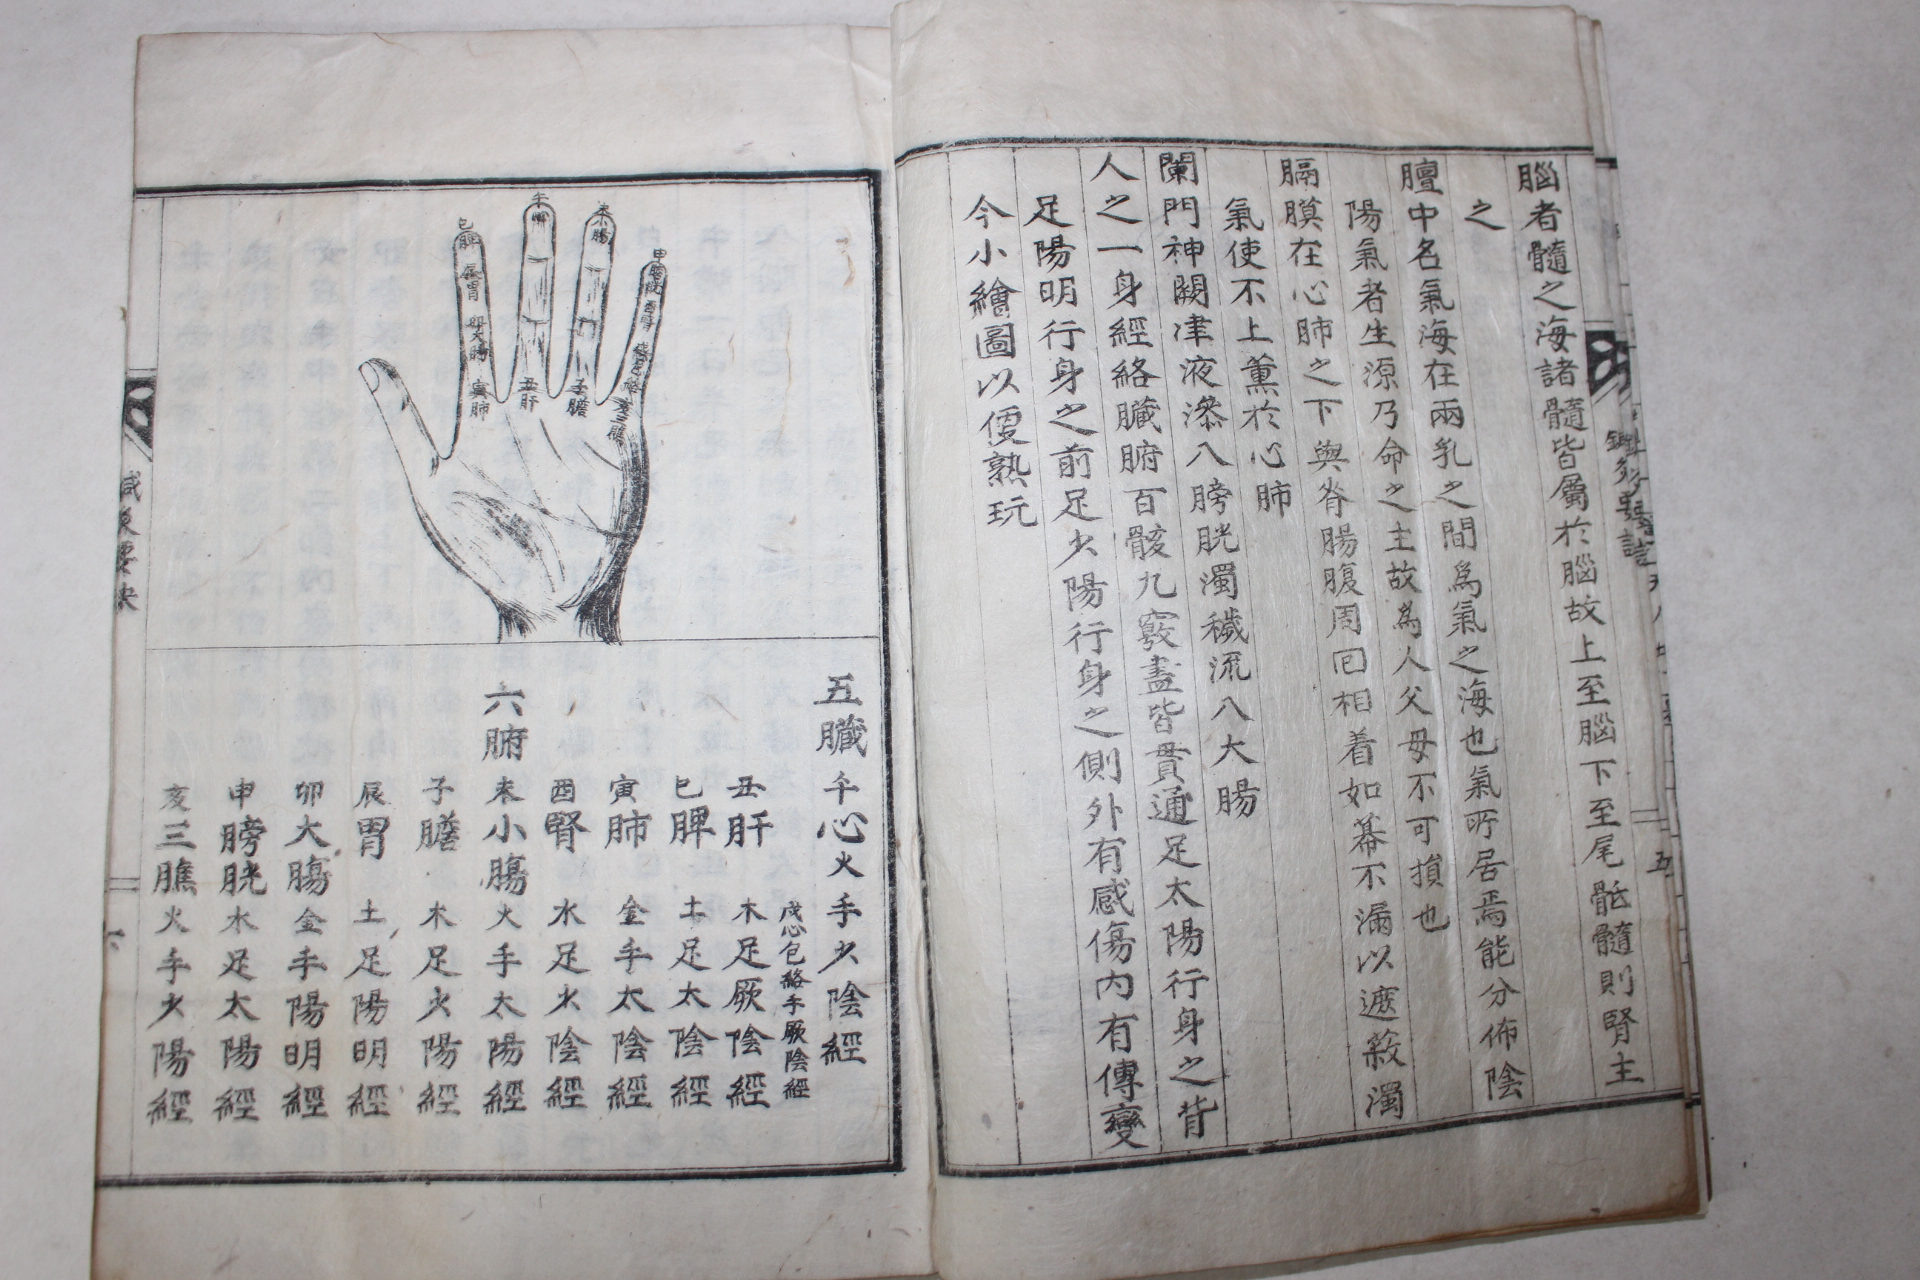 腦者髓之海諸髓皆屬於腦故上至腦下至尾骶髓則腎主
之
膻中名氣海在兩乳之間爲氣之海也氣所居焉能分佈陰
陽氣者生源乃命之主故爲人父母不可損也
膈膜在心肺之下與脊腸腹周回相着如幕不漏以遮蔽濁
氣使不上薰於心肺
闌門神闕津液滲八膀胱濁穢流八大腸
人之一身經絡臟腑百骸九竅盡皆貫通足太陽行身之背
足陽明行身之前足少陽行身之側外有感傷內有傳變
今小繪圖以便熟玩
五
巳脾
辰胃
卯大腸
寅肺
午
丑肝
未
子膽
申膀胱
酉腎
亥三焦
五臟
午心火手少陰經
戌心包絡手厥陰經
丑肝木足厥陰經
巳脾土足太陰經
寅肺金手太陰經
酉腎水足少陰經
六腑
未小腸火手太陽經
子膽木足少陽經
辰胃土足陽明經
卯大腸金手陽明經
申膀胱水足太陽經
亥三膲火手少陽經
六